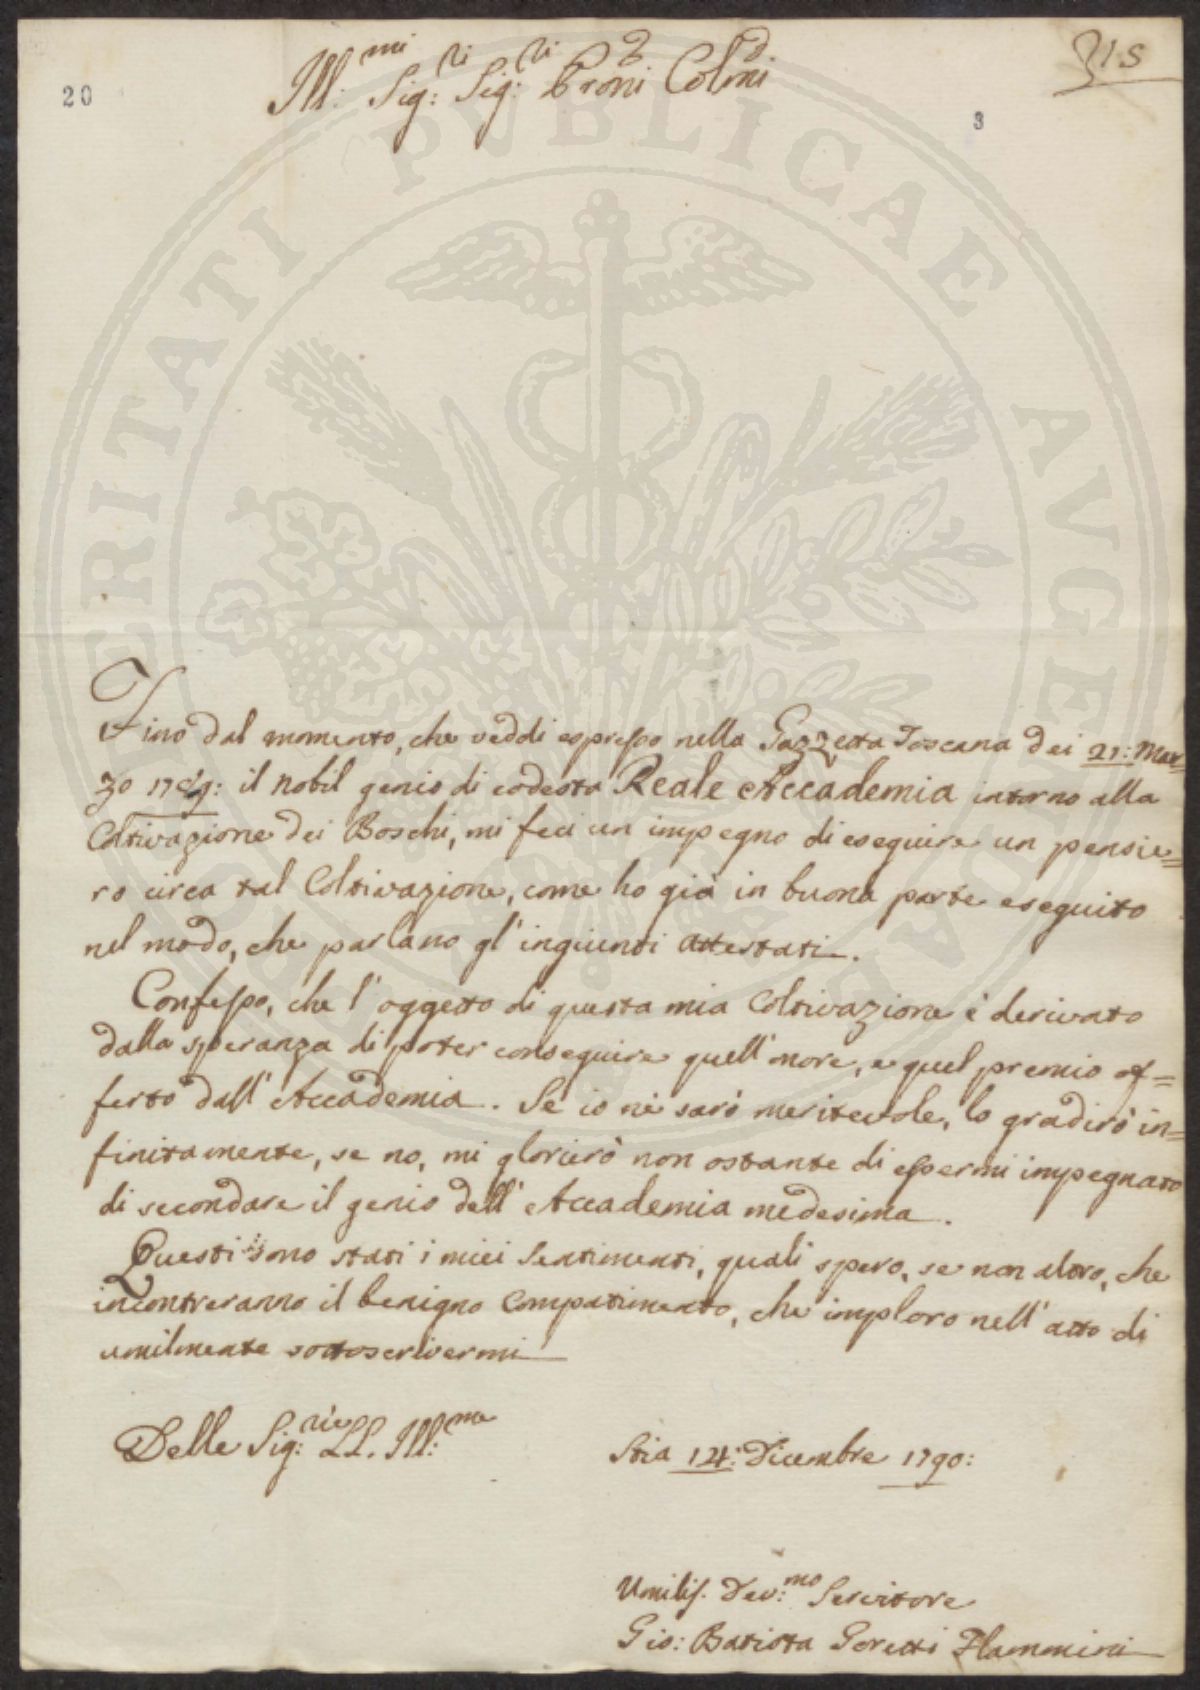 315
20
3
Ill:mi Sig:ri Sig:ri Proni Colmi
Fino dal momento, che veddi espresso nella Gazzetta Toscana dei 21: Mar=
zo 1789: il nobil genio di codesta Reale Accademia intorno alla
Coltivazione dei Boschi, mi feci un impegno di eseguire un pensie=
ro circa tal Coltivazione, come ho già in buona parte eseguito
nel modo, che parlano gl'ingiunti attestati.
Confesso, che l'oggetto di questa mia Coltivazione è derivato
dalla speranza di poter conseguire quell'onore, e quel premio of=
ferto dall'Accademia. Se io nè sarò meritevole, lo gradirò in=
finitamente, se no, mi glorierò non ostante di essermi impegnato
di secondare il genio dell'Accademia medesima.
Questi sono stati i miei Sentimenti, quali spero, se non altro, che
incontreranno il benigno Compatimento, che imploro nell'atto di
umilmente sottoscrivermi
Delle Sig:rie LL. Ill:me
Stia 14: Dicembre 1790:
Umilis. Dev:mo Servitore
Gio: Batista Goretti Flammini
PROSPERITATI PVBLICAE AVGENDAE